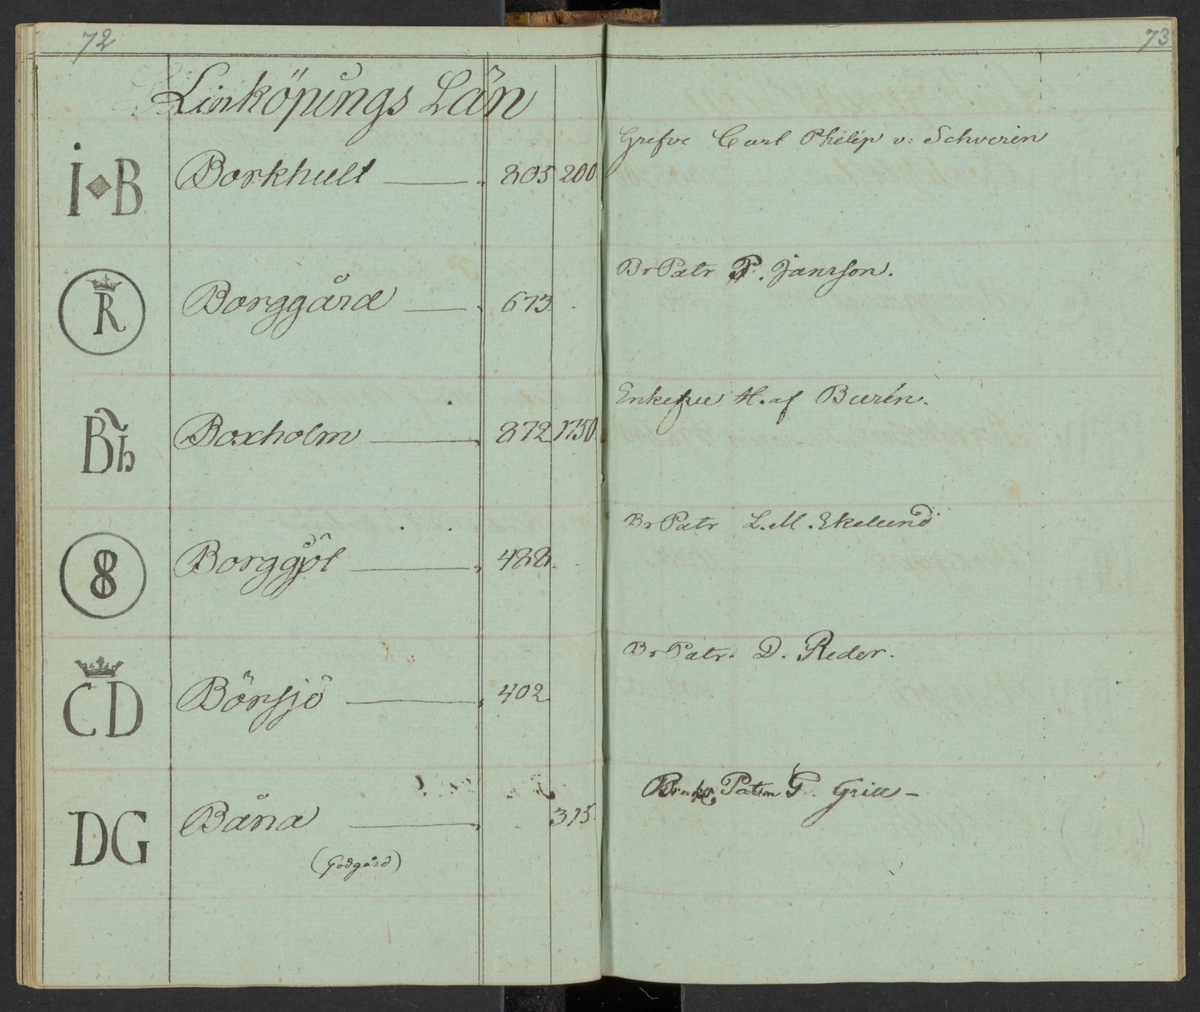 72
73
Linköpings Län
I◆B Borkhult 205 200 Grefve Carl Philip v: Schverin
R Borggård 673 Br Patr P. Janrson.
Bh Boxholm 872 1750 H. af Burén.
8 Borggöl 488 Br Patr L. M. Ekelund
CD Börsjö 402 Br Patr. D. Reder.
DG Båna 315 Patron G Grill
(Godgård)